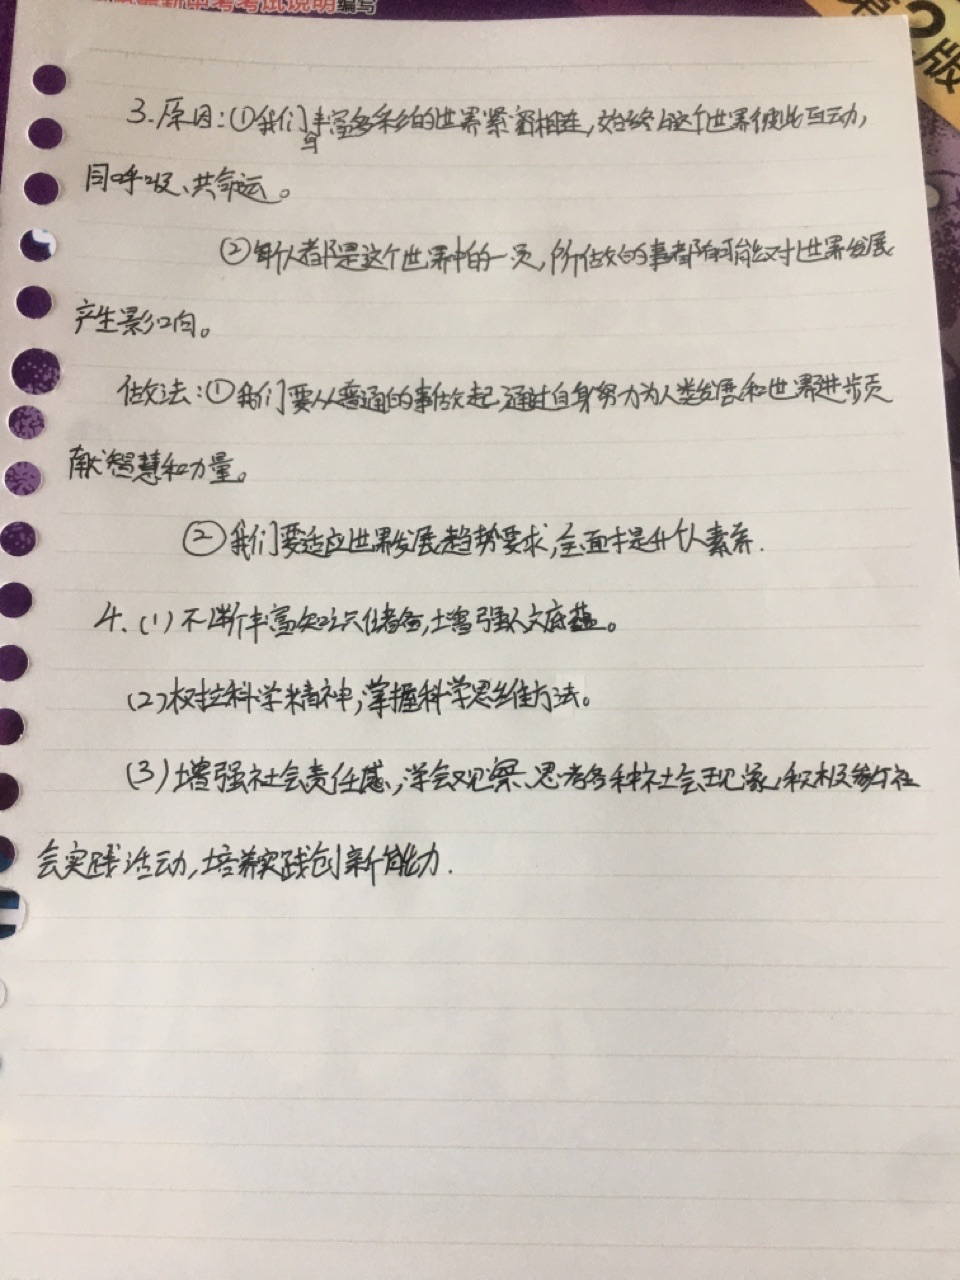 最新中考考试说明编写
第2版
3.原因:①我们与丰富多彩的世界紧密相连,始终与这个世界彼此互动,
同呼吸、共命运。
②每个人都是这个世界中的一员,所做的事都有可能对世界发展
产生影响。
做法:①我们要从普通的事做起,通过自身努力为人类发展和世界进步贡
献智慧和力量。
②我们要适应世界发展趋势要求,全面提升个人素养.
4.(1)不断丰富知识储备,增强人文底蕴。
(2)树立科学精神,掌握科学思维方法。
(3)增强社会责任感,学会观察、思考各种社会现象,积极参与社
会实践活动,培养实践创新能力.